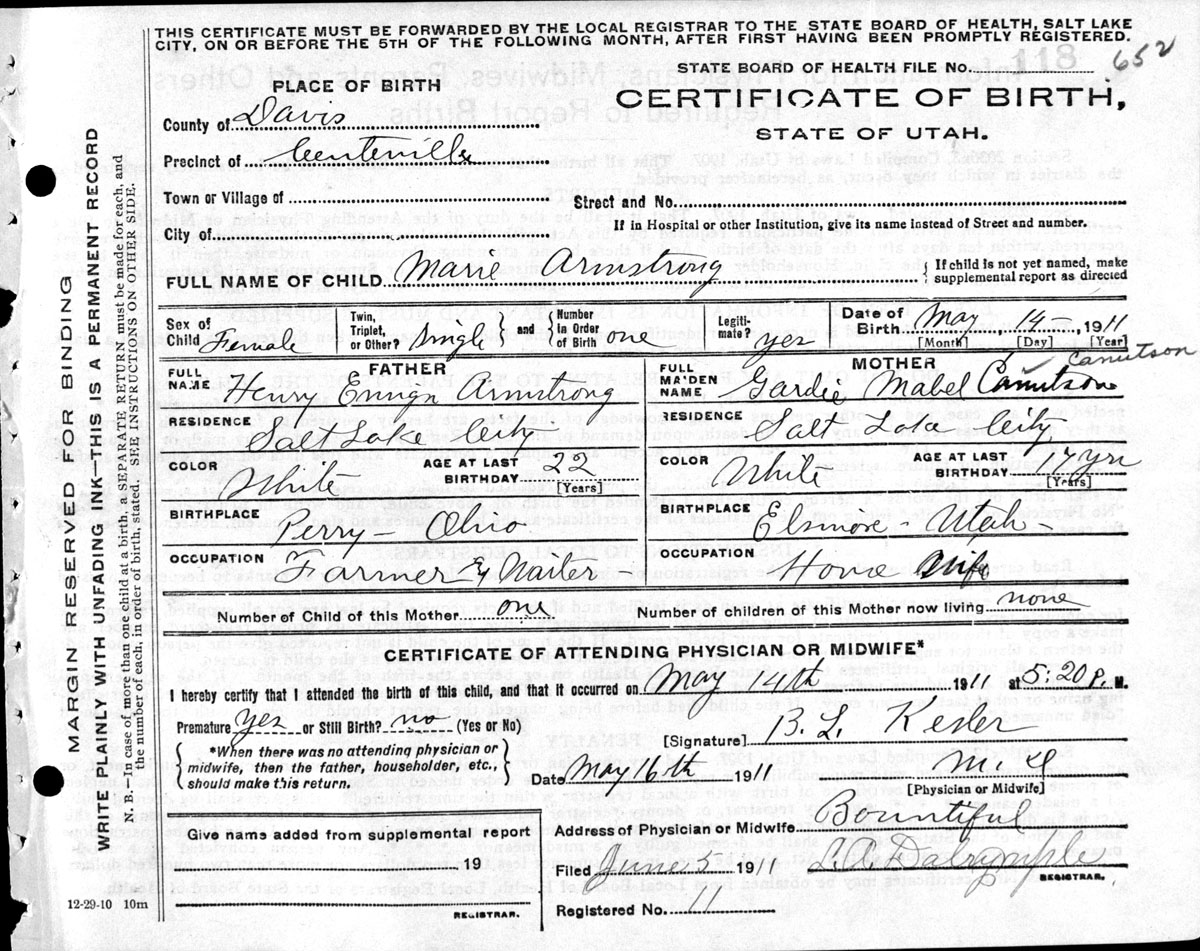 THIS CERTIFICATE MUST BE FORWARDED BY THE LOCAL REGISTRAR TO THE STATE BOARD OF HEALTH, SALT LAKE
CITY, ON OR BEFORE THE 5TH OF THE FOLLOWING MONTH, AFTER FIRST HAVING BEEN PROMPTLY REGISTERED.
STATE BOARD OF HEALTH FILE No. 118 652
PLACE OF BIRTH
CERTIFICATE OF BIRTH,
STATE OF UTAH.
County of Davis
Precinct of Centerville
Town or Village of
Street and No.
City of
If in Hospital or other Institution, give its name instead of Street and number.
FULL NAME OF CHILD Marie Armstrong { If child is not yet named, make supplemental report as directed
Sex of Child Female
Twin, Triplet, or Other? Single } and { Number in Order of Birth one
Legitimate? yes
Date of Birth May 14 - 1911
[Month] [Day] [Year]
FATHER
FULL NAME Henry Armstrong
RESIDENCE Salt Lake City
COLOR White
AGE AT LAST BIRTHDAY 22
[Years]
BIRTHPLACE Perry - Ohio
OCCUPATION Farmer
MOTHER
FULL MAIDEN NAME Gardie Mabel Canutson Canutson
RESIDENCE Salt Lake City
COLOR White
AGE AT LAST BIRTHDAY 17 yrs
(Years)
BIRTHPLACE Elsinore - Utah -
OCCUPATION House Wife
Number of Child of this Mother one
Number of children of this Mother now living none
CERTIFICATE OF ATTENDING PHYSICIAN OR MIDWIFE*
I hereby certify that I attended the birth of this child, and that it occurred on May 14th 1911 at 5:20 P. M.
Premature yes or Still Birth? no (Yes or No)
{ *When there was no attending physician or midwife, then the father, householder, etc., should make this return. }
[Signature] B. L. Kesler
Date May 16th 1911 M. D
[Physician or Midwife]
Give name added from supplemental report
19
REGISTRAR.
Address of Physician or Midwife Bountiful
Filed June 5 1911 Dalrymple
REGISTRAR.
Registered No. 11
12-29-10 10m
MARGIN RESERVED FOR BINDING
WRITE PLAINLY WITH UNFADING INK—THIS IS A PERMANENT RECORD
N. B.—In case of more than one child at a birth, a SEPARATE RETURN must be made for each, and
the number of each, in order of birth, stated. SEE INSTRUCTIONS ON OTHER SIDE.